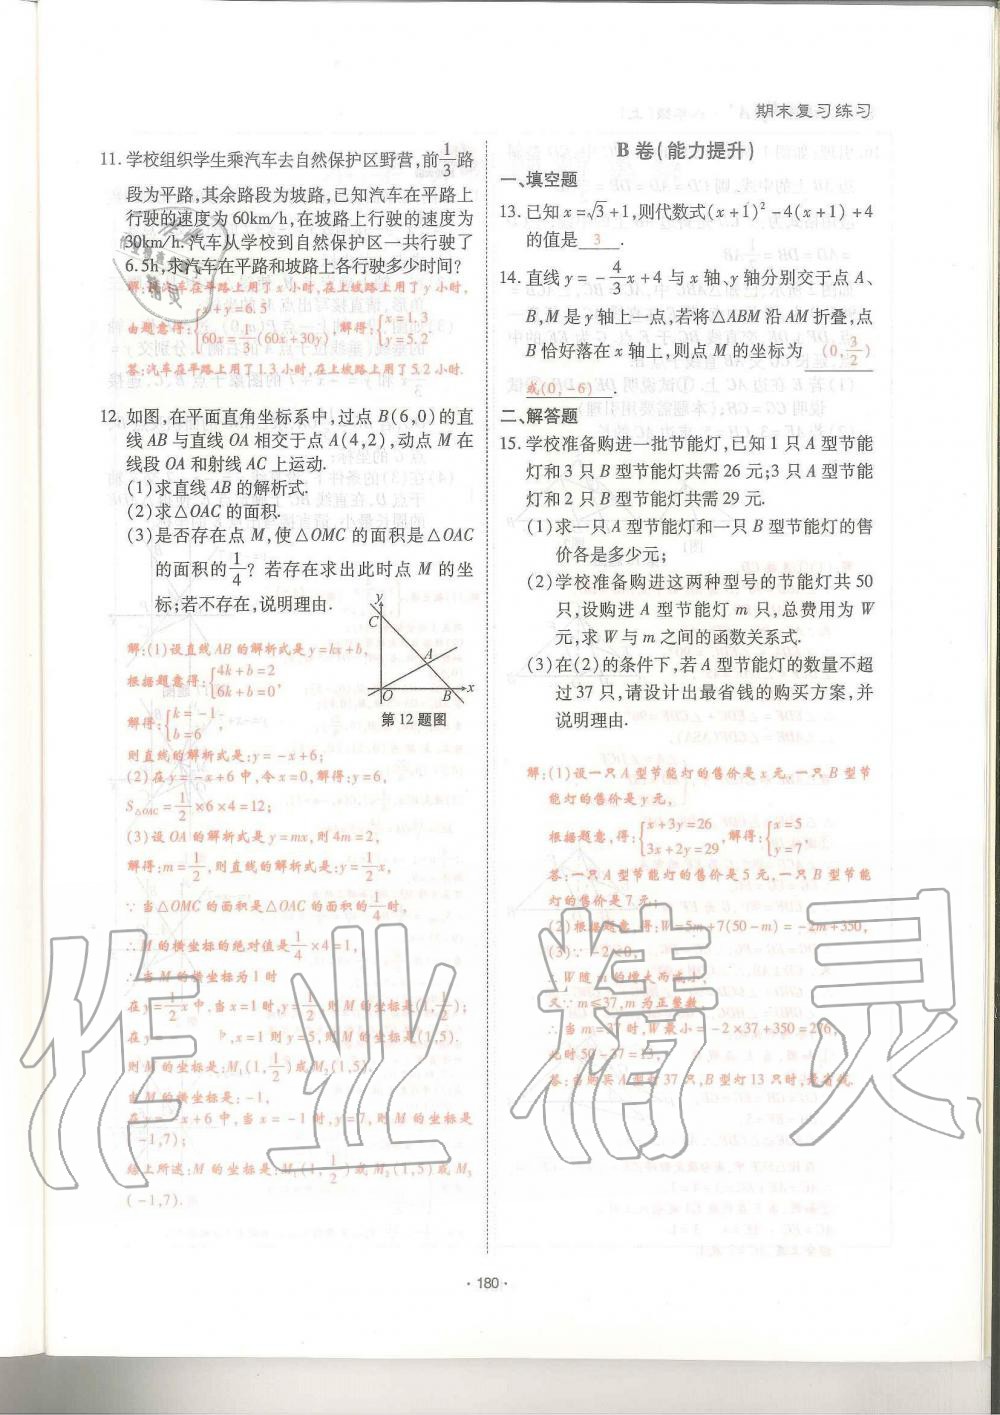 期末复习练习
11. 学校组织学生乘汽车去自然保护区野营,前1/3路
段为平路,其余路段为坡路,已知汽车在平路上
行驶的速度为60km/h,在坡路上行驶的速度为
30km/h.汽车从学校到自然保护区一共行驶了
6.5h,求汽车在平路和坡路上各行驶多少时间?
解:设汽车在平路上用了x小时,在上坡路上用了y小时,
由题意得:{x+y=6.5 60x=1/3(60x+30y) 解得:{x=1.3 y=5.2.
答:汽车在平路上用了1.3小时,在上坡路上用了5.2小时.
12. 如图,在平面直角坐标系中,过点B(6,0)的直
线AB与直线OA相交于点A(4,2),动点M在
线段OA和射线AC上运动.
(1)求直线AB的解析式.
(2)求△OAC的面积.
(3)是否存在点M,使△OMC的面积是△OAC
的面积的1/4?若存在求出此时点M的坐
标;若不存在,说明理由.
y
C
A
O
B
x
第12题图
解:(1)设直线AB的解析式是y=kx+b,
根据题意得:{4k+b=2 6k+b=0,
解得:{k=-1 b=6,
则直线的解析式是:y=-x+6;
(2)在y=-x+6中,令x=0,解得:y=6,
S△OAC=1/2×6×4=12;
(3)设OA的解析式是y=mx,则4m=2,
解得:m=1/2,则直线的解析式是:y=1/2x,
∵当△OMC的面积是△OAC的面积的1/4时,
∴M的横坐标的绝对值是1/4×4=1,
∴当M的横坐标为1时
在y=1/2x中,当x=1时,y=1/2,则M的坐标是(1,1/2);
在y=,x=1则y=5,则M的坐标是(1,5).
则M的坐标是:M₁(1,1/2)或M₂(1,5).
当M的横坐标是:-1,
在y=-x+6中,当x=-1时,y=7,则M的坐标是
(-1,7);
综上所述:M的坐标是:M₁(1,1/2)或M₂(1,5)或M₃
(-1,7).
B卷(能力提升)
一、填空题
13. 已知x=√3+1,则代数式(x+1)²-4(x+1)+4
的值是 3 .
14. 直线y=-4/3x+4与x轴、y轴分别交于点A、
B,M是y轴上一点,若将△ABM沿AM折叠,点
B恰好落在x轴上,则点M的坐标为 (0,3/2)
或(0,-6).
二、解答题
15. 学校准备购进一批节能灯,已知1只A型节能
灯和3只B型节能灯共需26元;3只A型节能
灯和2只B型节能灯共需29元.
(1)求一只A型节能灯和一只B型节能灯的售
价各是多少元;
(2)学校准备购进这两种型号的节能灯共50
只,设购进A型节能灯m只,总费用为W
元,求W与m之间的函数关系式.
(3)在(2)的条件下,若A型节能灯的数量不超
过37只,请设计出最省钱的购买方案,并
说明理由.
解:(1)设一只A型节能灯的售价是x元,一只B型节
能灯的售价是y元,
根据题意,得:{x+3y=26 3x+2y=29,解得:{x=5 y=7
答:一只A型节能灯的售价是5元,一只B型节能
灯的售价是7元;
(2)根据题意,得:W=5m+7(50-m)=-2m+350,
(3)∵-2<0,
∴W随m的增大而减小,
又∵m≤37,m为正整数,
∴当m=37时,W最小=-2×37+350=276,
此时50-37=13,
答:当购买A型灯37只,B型灯13只时,最省钱.
·180·
作业精灵